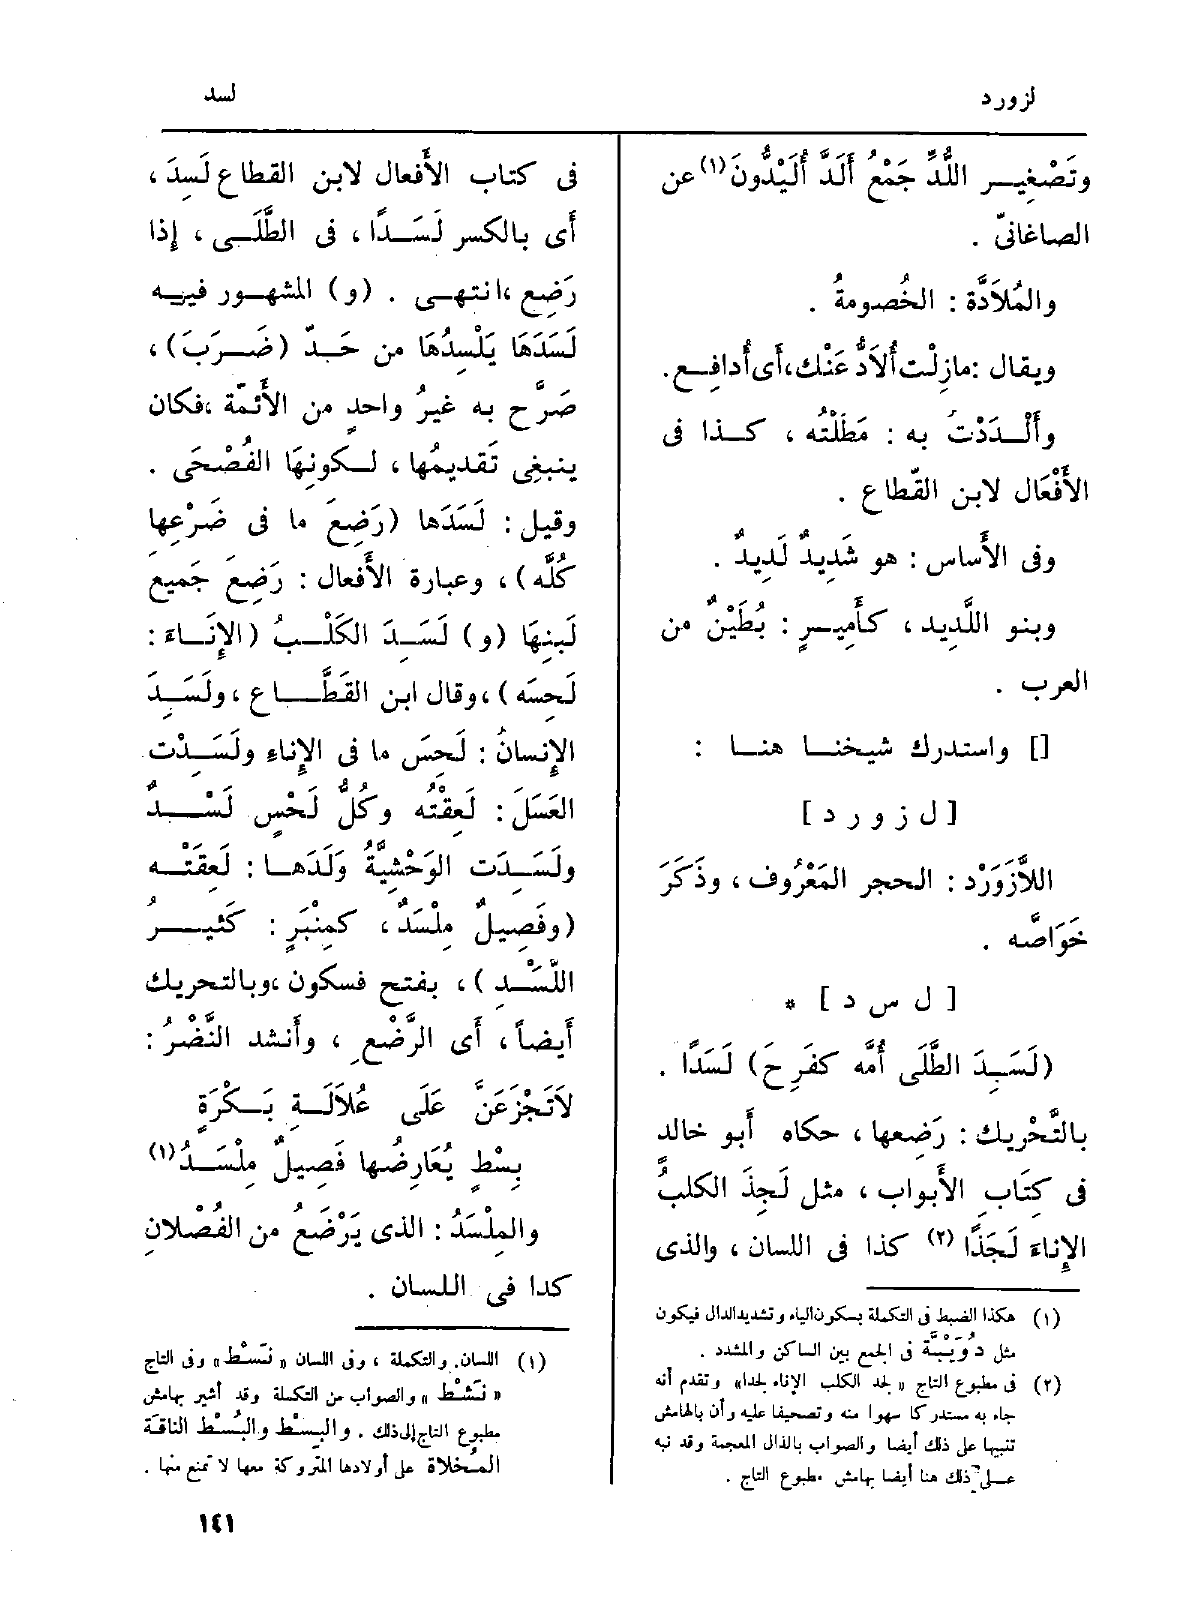 لزورد
لسد
وتَصْغِيـر اللُّدِّ جَمْعُ أَلَدَّ أُلَيْدُّونَ(١) عن
الصاغانيّ .
والمُلاَدَّة : الخُصومةُ .
ويقال : مازِلْت أُلاَدُّ عَنْك ، أَى أُدافِـع .
وأَلْـدَدْتُ به : مَطَلْتُه ، كـذا فى
الأَفْعَال لابن القَطَّاع .
وفى الأَساس : هو شَدِيدٌ لَدِيدٌ .
وبنو اللَّدِيد ، كأَمِيـرٍ : بُطَيْنٌ من
العرب .
[] واستدرك شيخنـا هنـا :
[ ل ز و ر د ]
اللاَّزَوَرْد : الحجر المَعْرُوف ، وذَكَرَ
خَوَاصَّه .
[ ل س د ] *
(لَسَـدَ الطَّلَى أُمَّه كفَرِحَ) لَسَدًا .
بالتَّحْرِيك : رَضِعها ، حكاه أَبو خالد
فى كِتَابِ الأَبواب ، مثل لَجِذَ الكلبُ
الإِناءَ لَجَذًا (٢) كذا فى اللسان ، والذى
(١) هكذا الضبط فى التكملة بسكون الياء وتشديد الدال فيكون
مثل دُوَيْبَّة فى الجمع بين الساكن والمشدد .
(٢) فى مطبوع التاج « لجد الكلب الإناء لجدا» وتقدم أنه
جاء به مستدركا سهوا منه وتصحيفا عليه وأن بالهامش
تنبيها على ذلك أيضا والصواب بالذال المعجمة وقد نبه
عـلى ذلك هنا أيضا بهامش مطبوع التاج .
فى كتاب الأَفعال لابن القطاع لَسِدَ ،
أَى بالكسر لَسَـدًا ، فى الطَّلَـى ، إِذا
رَضِع ، انتهـى . (و) المشهـور فيـه
لَسَدَهَا يَلْسِدُهَا من حَـدّ (ضَـرَبَ) ،
صَرَّح به غيرُ واحدٍ من الأَئمَّة ، فكان
ينبغِى تَقديمُها ، لـكونِهَا الفُصْحَى .
وقيل : لَسَدَها (رَضِعَ ما فى ضَرْعِها
كُلَّه) ، وعبارة الأَفعال : رَضِعَ جَميع
لَبنِهَا (و) لَسَـدَ الكَلْـبُ (الإِنَـاءَ :
لَحِسَه) ، وقال ابن القَطَّـاع ، ولَسَـدَ
الإِنسانُ : لَحِسَ ما فى الإِناءِ ولَسَـدْت
العَسَلَ : لَعِقْتُه وكُلُّ لَحْسٍ لَسْـدٌ
ولَسَـدَت الوَحْشِيَّةُ وَلَدَهـا : لَعِقَتْـه
(وفَصِيلٌ مِلْسَدٌ ، كمِنْبَرٍ : كَثيـرُ
اللَّسْـدِ) ، بفتح فسكون ، وبالتحريك
أَيضاً ، أَى الرَّضْعِ ، وأَنشد النَّضْرُ :
لاَتَجْزَعَنَّ عَلَى عُلاَلَـةِ بَـكْرَةٍ
بِسْطٍ يُعَارِضُها فَصِيلٌ مِلْسَـدُ(١)
والمِلْسَدُ : الذى يَرْضَعُ من الفُصْلانِ
كدا فى اللسان .
(١) اللسان. والتكملة ، وفى اللسان « نَسْط» وفى التاج
« نَشْط » والصواب من التكملة وقد أشير بهامش
مطبوع التاج إلى ذلك . والبِسْط والبُسْط الناقة
المُخلاة على أولادها المتروكة معها لا تمنع منها .
١٤١